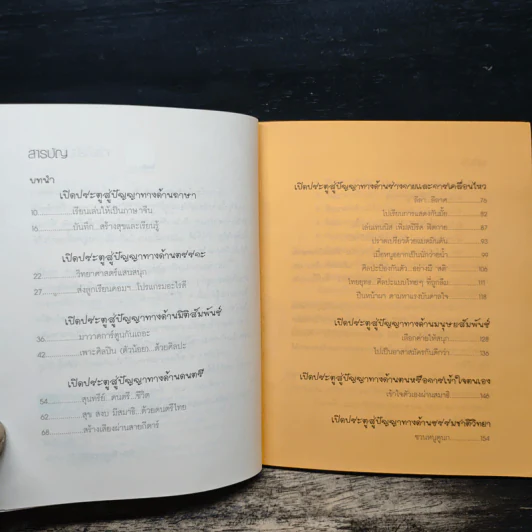 สารบัญ
บทนำ
เปิดประตูสู่ปัญญาทางด้านภาษา
10 เรียนเล่นให้เป็นภาษาจีน
16 บันทึก...สร้างสุขและเรียนรู้
เปิดประตูสู่ปัญญาทางด้านตรรกะ
22 วิทยาศาสตร์แสนสนุก
27 ส่งลูกเรียนคอมฯ...โปรแกรมอะไรดี
เปิดประตูสู่ปัญญาทางด้านมิติสัมพันธ์
36 มาวาดการ์ตูนกันเถอะ
42 เพาะศิลปิน (ตัวน้อย)...ด้วยศิลปะ
เปิดประตูสู่ปัญญาทางด้านดนตรี
54 สุนทรีย์...ดนตรี...ชีวิต
62 สุข สงบ มีสมาธิ...ด้วยดนตรีไทย
68 สร้างเสียงผ่านสายกีตาร์
เปิดประตูสู่ปัญญาทางด้านร่างกายและการเคลื่อนไหว
ลีลา...ลีลาศ 76
ไปเรียนการแสดงกันมั้ย 82
เล่นเทนนิส 87
ปราดเปรียวด้วยแบดมินตัน 93
เมื่อหนูอยากเป็นนักว่ายน้ำ 99
ศิลปะป้องกันตัว...อย่างมี "สติ" 106
ไทยยุทธ...ศิลปะแบบไทยๆ ที่ถูกลืม 111
ปีนหน้าผา ตามหาแรงบันดาลใจ 118
เปิดประตูสู่ปัญญาทางด้านมนุษยสัมพันธ์
เลือกค่ายให้สนุก 128
ไปเป็นอาสาสมัครกันดีกว่า 136
เปิดประตูสู่ปัญญาทางด้านตนหรือการเข้าใจตนเอง
เข้าใจตัวเองผ่านสมาธิ 146
เปิดประตูสู่ปัญญาทางด้านธรรมชาติวิทยา
ชวนหนูดูนก 154